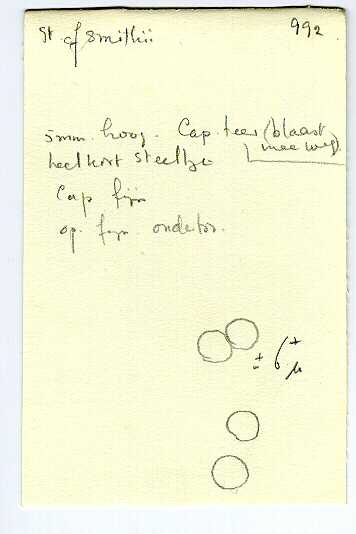 St. cf smithii 992
5mm. hoog. Cap. teer (blaast
mee weg)
heel kort steeltje
Cap fijn
op. fijn onder
± 6+ µ